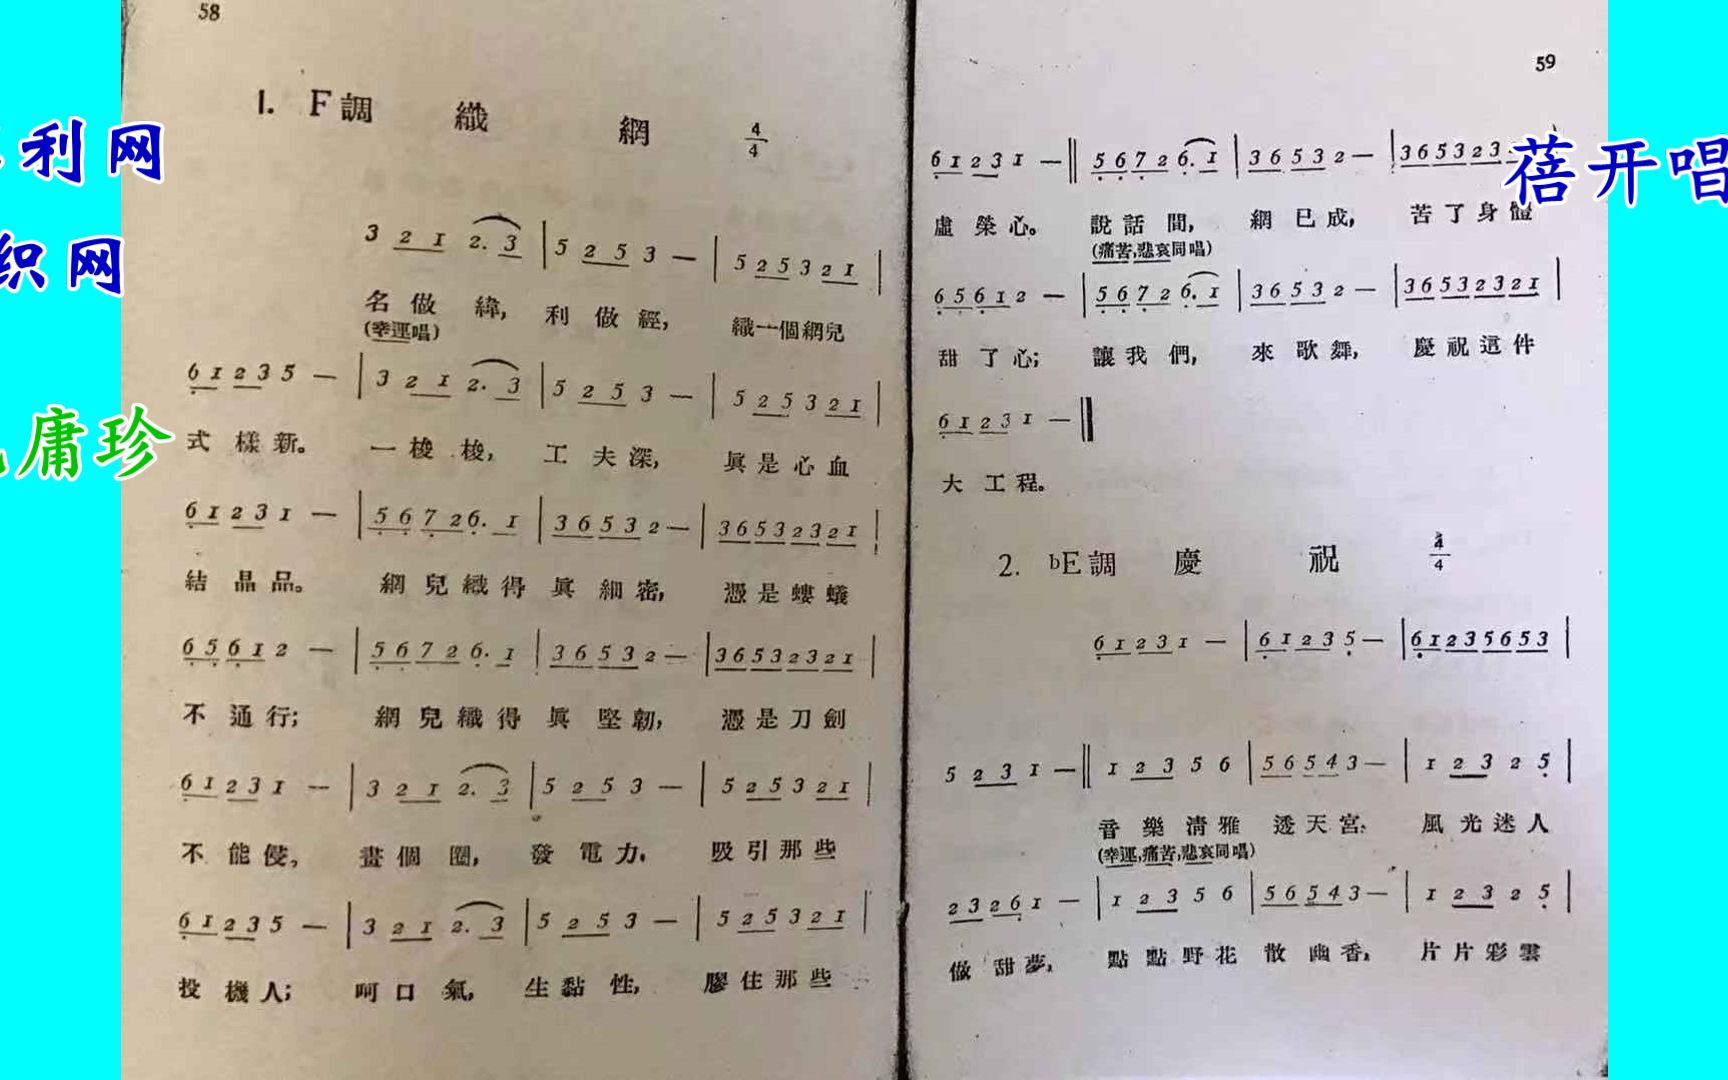 58
1. F調 織 網 4/4
3 2 1 2. 3 | 5 2 5 3 — | 5 2 5 3 2 1 |
名 做 緯， 利 做 經， 織一個網兒
(幸運唱)
6 1 2 3 5 — | 3 2 1 2. 3 | 5 2 5 3 — | 5 2 5 3 2 1 |
式 樣 新。 一 梭 梭， 工 夫 深， 眞 是 心 血
6 1 2 3 1 — | 5 6 7 2 6. 1 | 3 6 5 3 2 — | 3 6 5 3 2 3 2 1 |
結 晶 品。 網 兒 織 得 眞 細 密， 憑 是 螻 蟻
6 5 6 1 2 — | 5 6 7 2 6. 1 | 3 6 5 3 2 — | 3 6 5 3 2 3 2 1 |
不 通 行； 網 兒 織 得 眞 堅 韌， 憑 是 刀 劍
6 1 2 3 1 — | 3 2 1 2. 3 | 5 2 5 3 — | 5 2 5 3 2 1 |
不 能 侵。 畫 個 圈， 發 電 力， 吸 引 那 些
6 1 2 3 5 — | 3 2 1 2. 3 | 5 2 5 3 — | 5 2 5 3 2 1 |
投 機 人； 呵 口 氣， 生 黏 性， 膠 住 那 些
59
6 1 2 3 1 — ‖ 5 6 7 2 6. 1 | 3 6 5 3 2 — | 3 6 5 3 2 3
虛 榮 心。 說 話 間， 網 已 成， 苦 了 身 體
(痛苦,悲哀同唱)
6 5 6 1 2 — | 5 6 7 2 6. 1 | 3 6 5 3 2 — | 3 6 5 3 2 3 2 1 |
甜 了 心； 讓 我 們， 來 歌 舞， 慶 祝 這 件
6 1 2 3 1 — ‖
大 工 程。
2. bE調 慶 祝 4/4
6 1 2 3 1 — | 6 1 2 3 5 — | 6 1 2 3 5 6 5 3 |
5 2 3 1 — ‖ 1 2 3 5 6 | 5 6 5 4 3 — | 1 2 3 2 5 |
音 樂 清 雅 透 天 宮， 風 光 迷 人
(幸運,痛苦,悲哀同唱)
2 3 2 6 1 — | 1 2 3 5 6 | 5 6 5 4 3 — | 1 2 3 2 5 |
做 甜 夢， 點 點 野 花 散 幽 香， 片 片 彩 雲
利网
织网
庸珍
蓓开唱